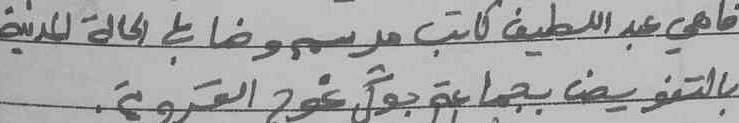 فاهي عبد اللطيف كاتب مدسم وضابط الحالة المدنية
بالتفويض بجماعة بوكرغوح القروية.